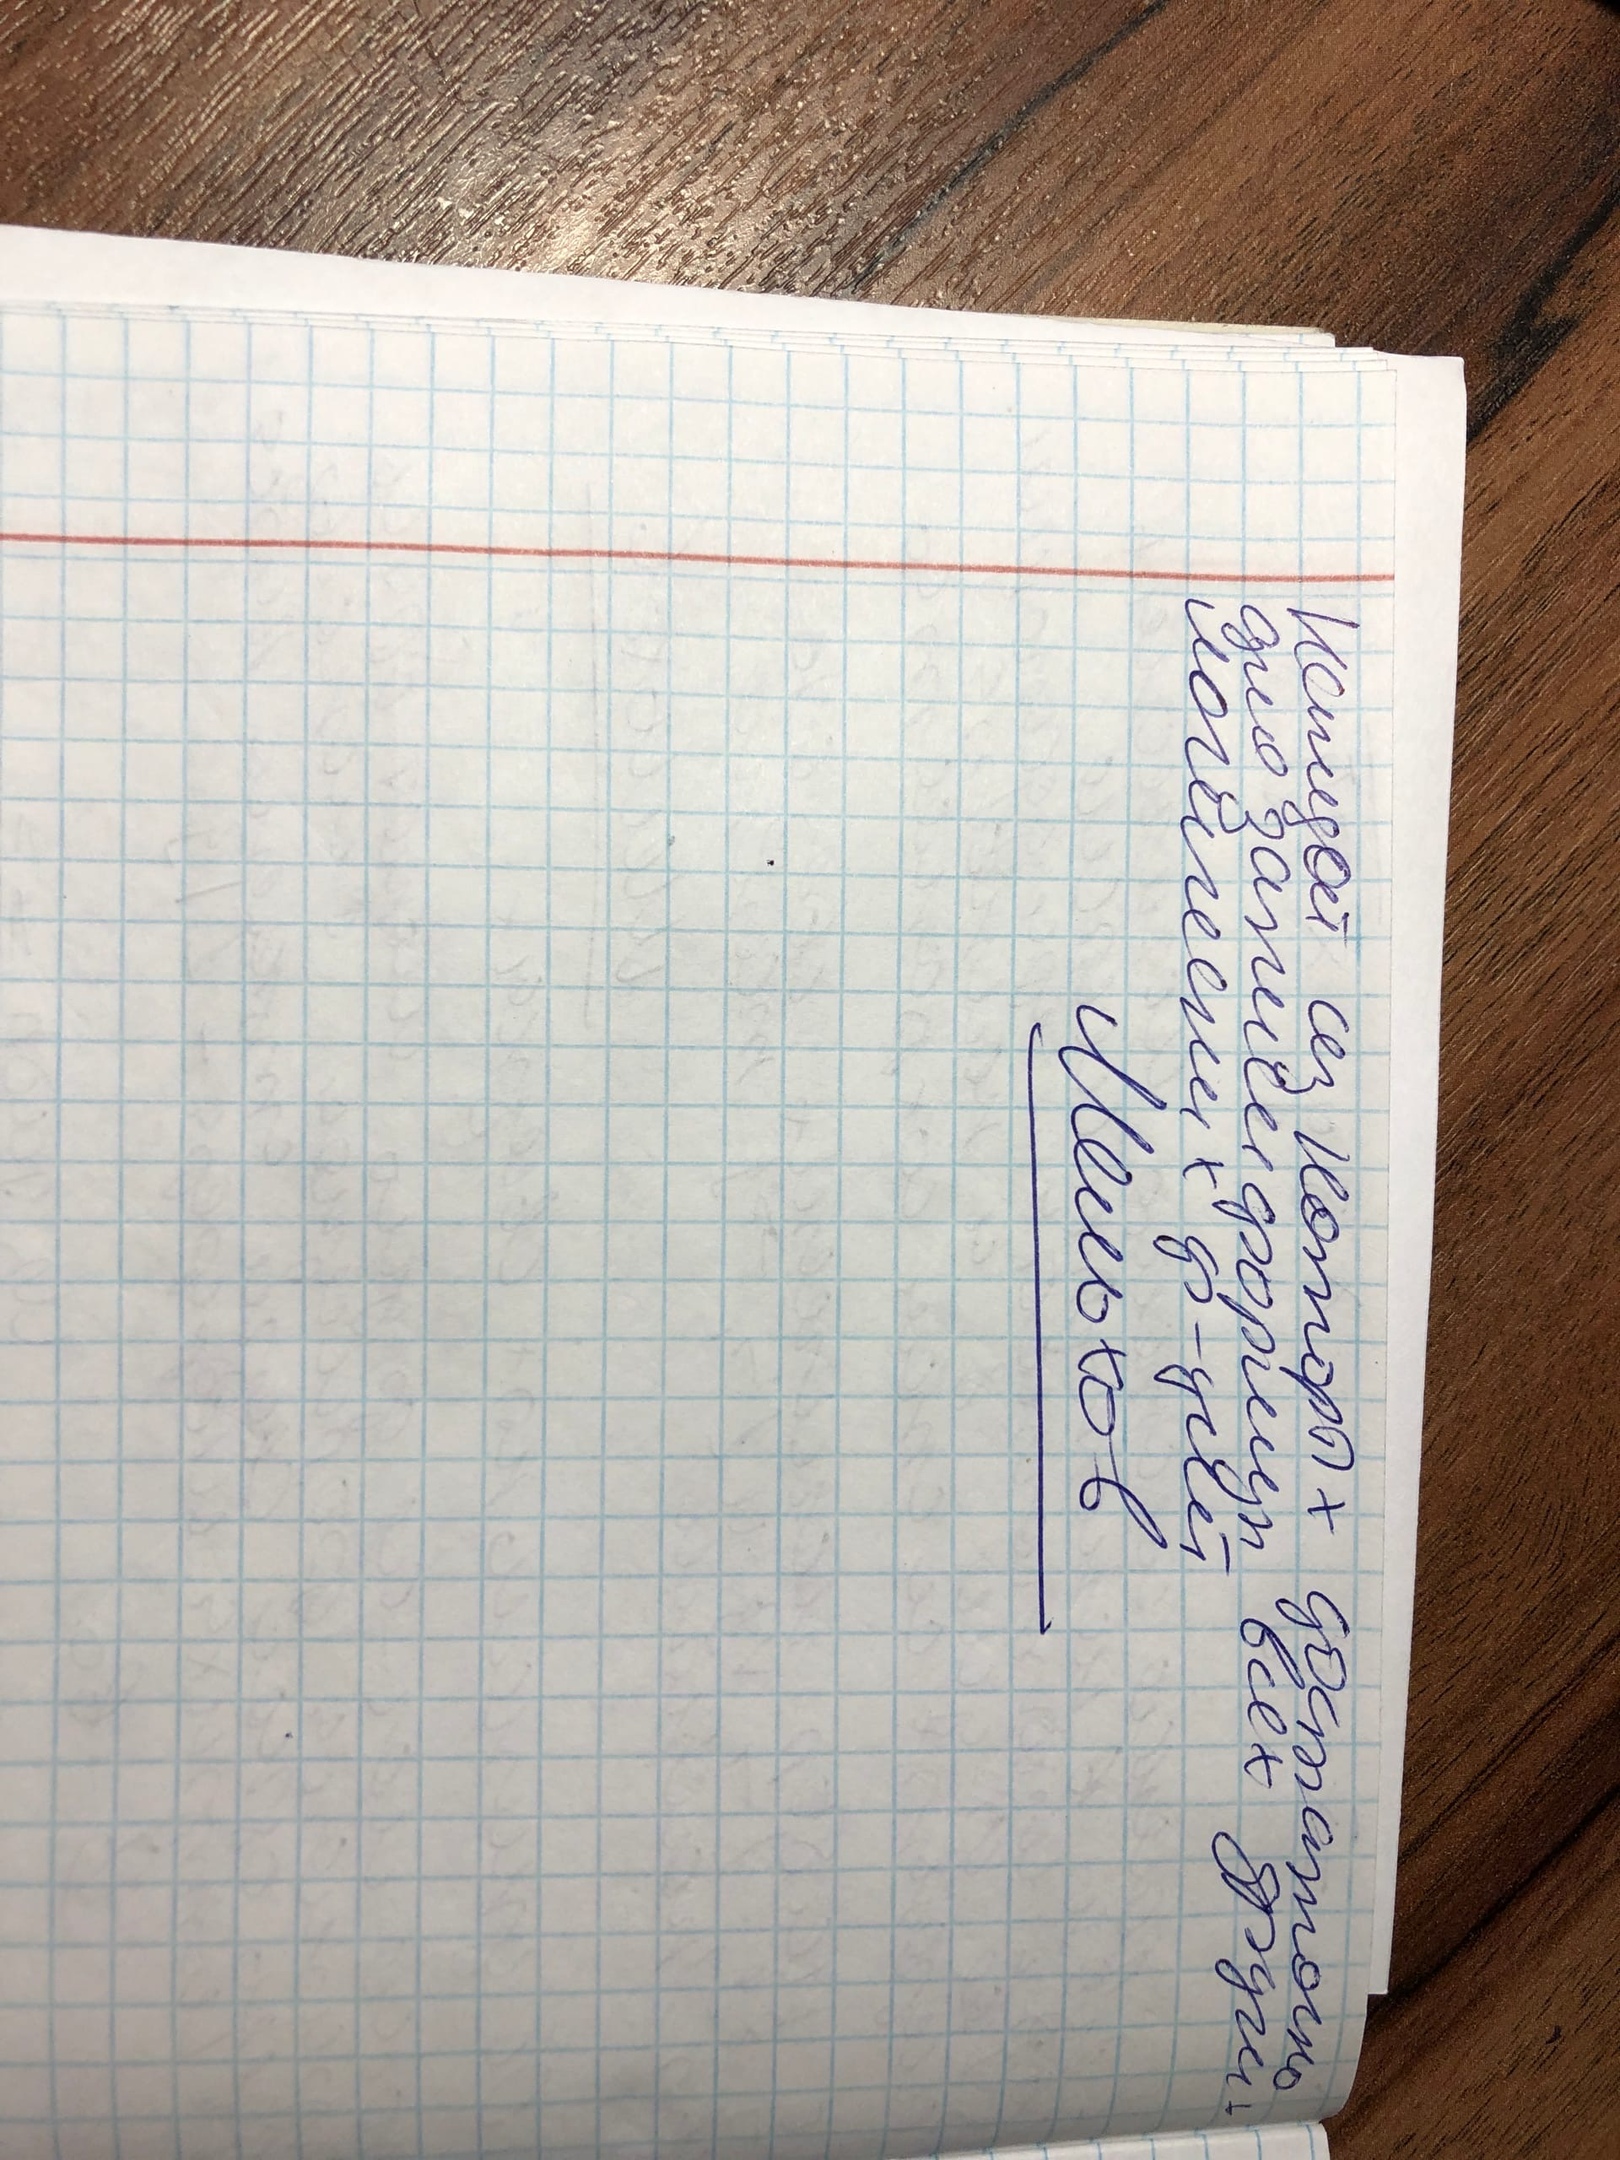 каждой из которых достаточно
для записи формул всех других
логических ф-ций
Мельхов